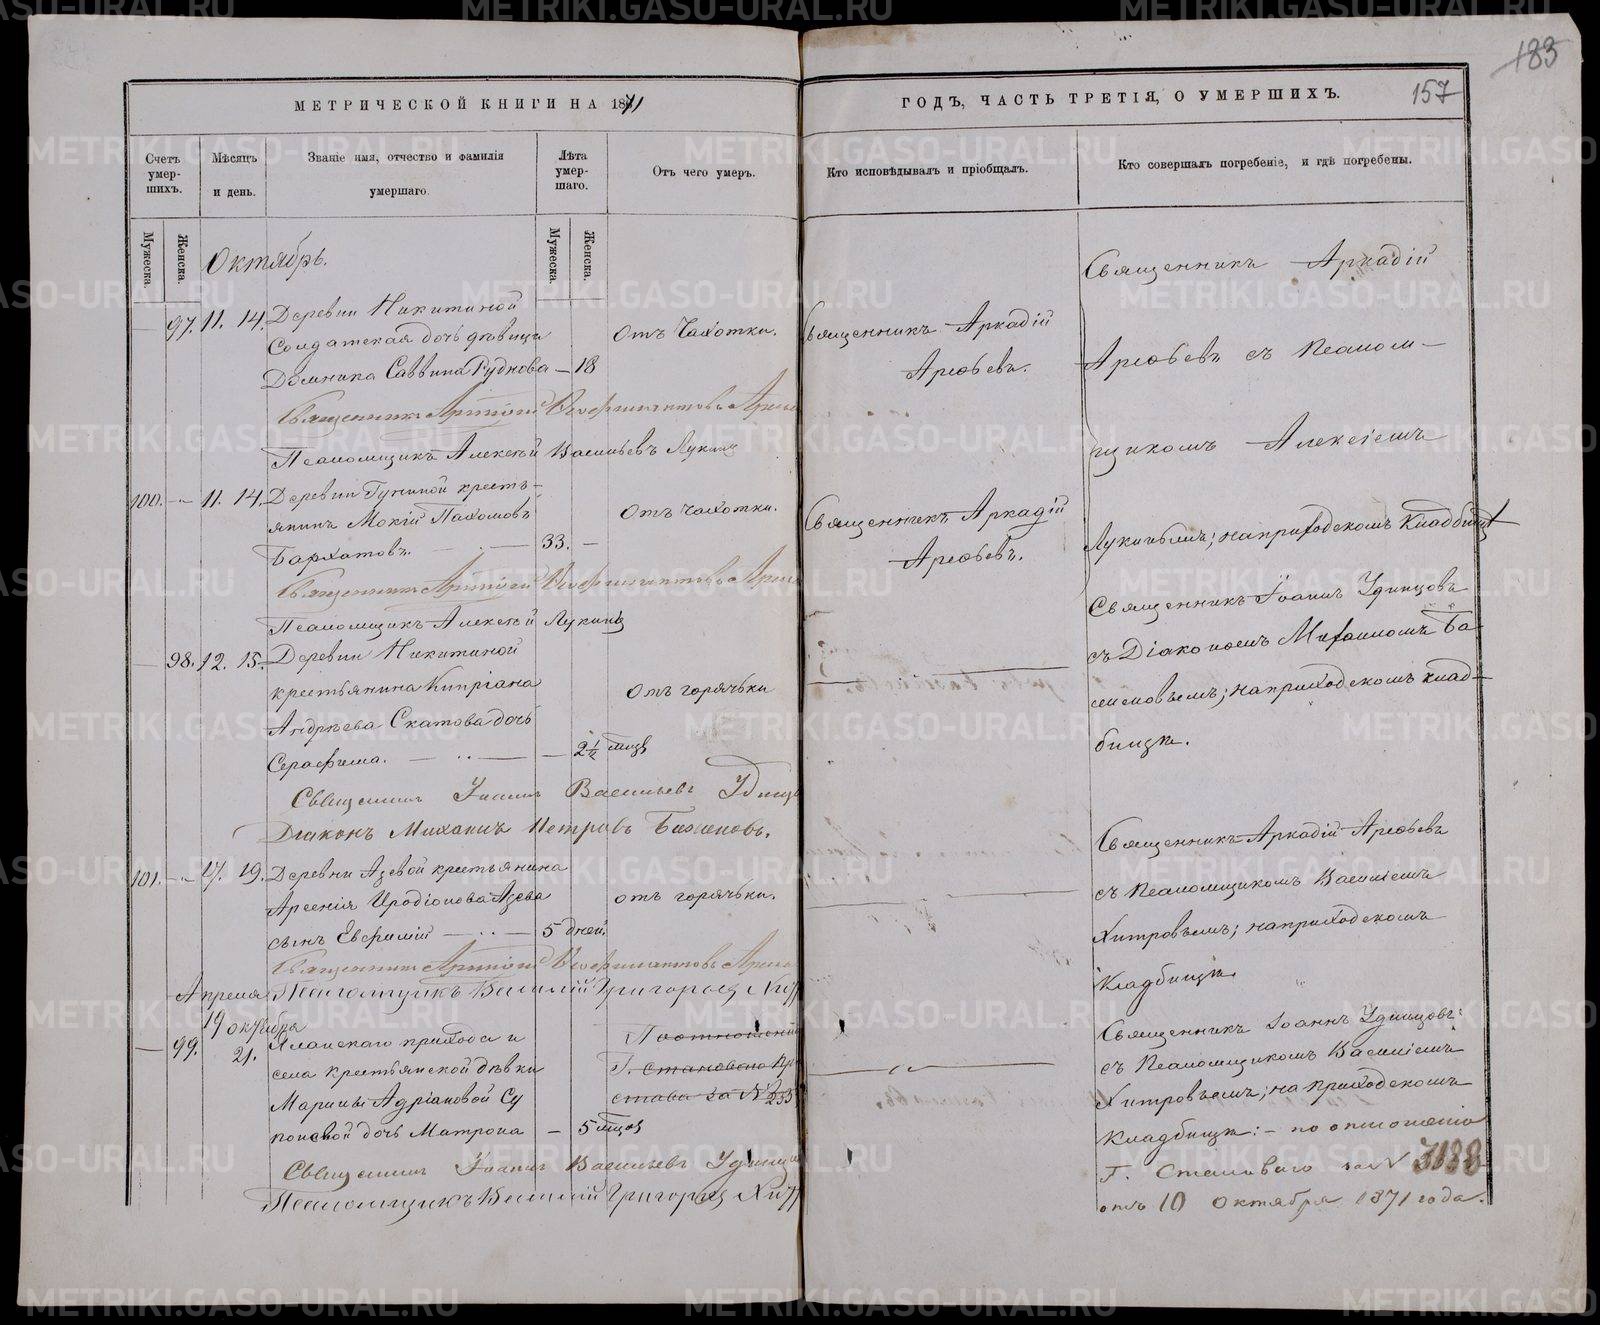 183
157
МЕТРИЧЕСКОЙ КНИГИ НА 1871
ГОДЪ, ЧАСТЬ ТРЕТІЯ, О УМЕРШИХЪ.
Счетъ умер-шихъ.
Мѣсяцъ и день.
Званіе имя, отчество и фамилія умершаго.
Лѣта умер-шаго.
Отъ чего умеръ.
Кто исповѣдывалъ и пріобщалъ.
Кто совершалъ погребеніе, и гдѣ погребены.
Мужеска.
Женска.
Мужеска.
Женска.
Октябрь.
97. 11. 14. Деревни Никитиной
Солдатская дочь дѣвица
Домника Саввина Рудкова — 18
Отъ Чахотки.
Священникъ Аркадій
Арефьевъ.
Священникъ Аркадій
Арефьевъ съ Псалом-
щикомъ Алексіемъ
Лукинымъ; на приходскомъ Кладбищѣ
Священникъ Аркадій
Псаломщикъ Алексѣй Васильевъ Лукинъ
100. 11. 14. Деревни Гуниной кресть-
янинъ Мокій Пахомовъ
Бархатовъ. 33.
Отъ чахотки.
Священникъ Аркадій
Арефьевъ.
Священникъ Аркадій
Псаломщикъ Алексѣй Лукинъ
98. 12. 15. Деревни Никитиной
крестьянина Кипріана
Андрѣева Скатова дочь
Серафима. 2½ мѣсц
Отъ горячьки
Священникъ Іоаннъ Удинцовъ
съ Діакономъ Михаиломъ Ба-
женовымъ; на приходскомъ клад-
бищѣ.
Священникъ Іоаннъ Васильевъ Удинцо
Діаконъ Михаилъ Петровъ Баженовъ.
101. 17. 19. Деревни Азевой крестьянина
Арсенія Иродіонова Азева
сынъ Евфимій 5 дней.
отъ горячьки.
Священникъ Аркадій Арефьевъ
съ Псаломщикомъ Василіемъ
Хитровымъ; на приходскомъ
Кладбищѣ.
Священникъ Аркадій
Псаломщикъ Василій Григорьев
Апреля
19 октября
99. 21. Яланскаго прихода и
села крестьянской дѣвки
Марины Адріановой Су
поновой дочь Матрона — 5 мѣцов
По отношенію
Г. Становаго При
става за №
233
Священникъ Іоаннъ Удинцовъ:
съ Псаломщикомъ Василіемъ
Хитровымъ; на приходскомъ
Кладбищѣ: — по отношенію
Г. Становаго за № 3188
отъ 10 Октября 1871 года.
Священникъ Іоаннъ Васильевъ Удинцо
Псаломщикъ Василій Григорьев